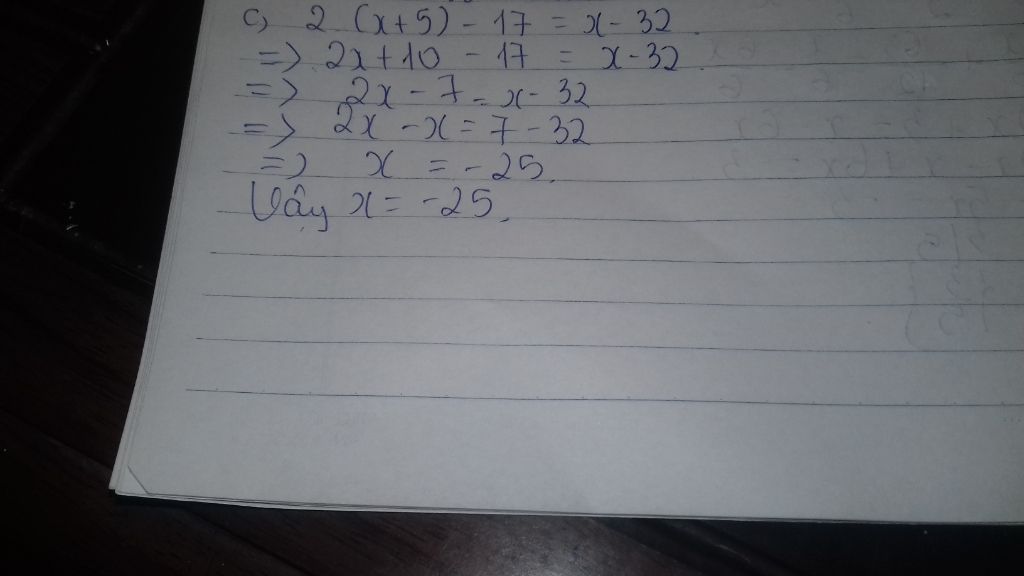 c) 2 (x+5) - 17 = x - 32.
=> 2x + 10 - 17 = x - 32.
=> 2x - 7 = x - 32
=> 2x - x = 7 - 32
=> x = -25.
Vậy x = -25.